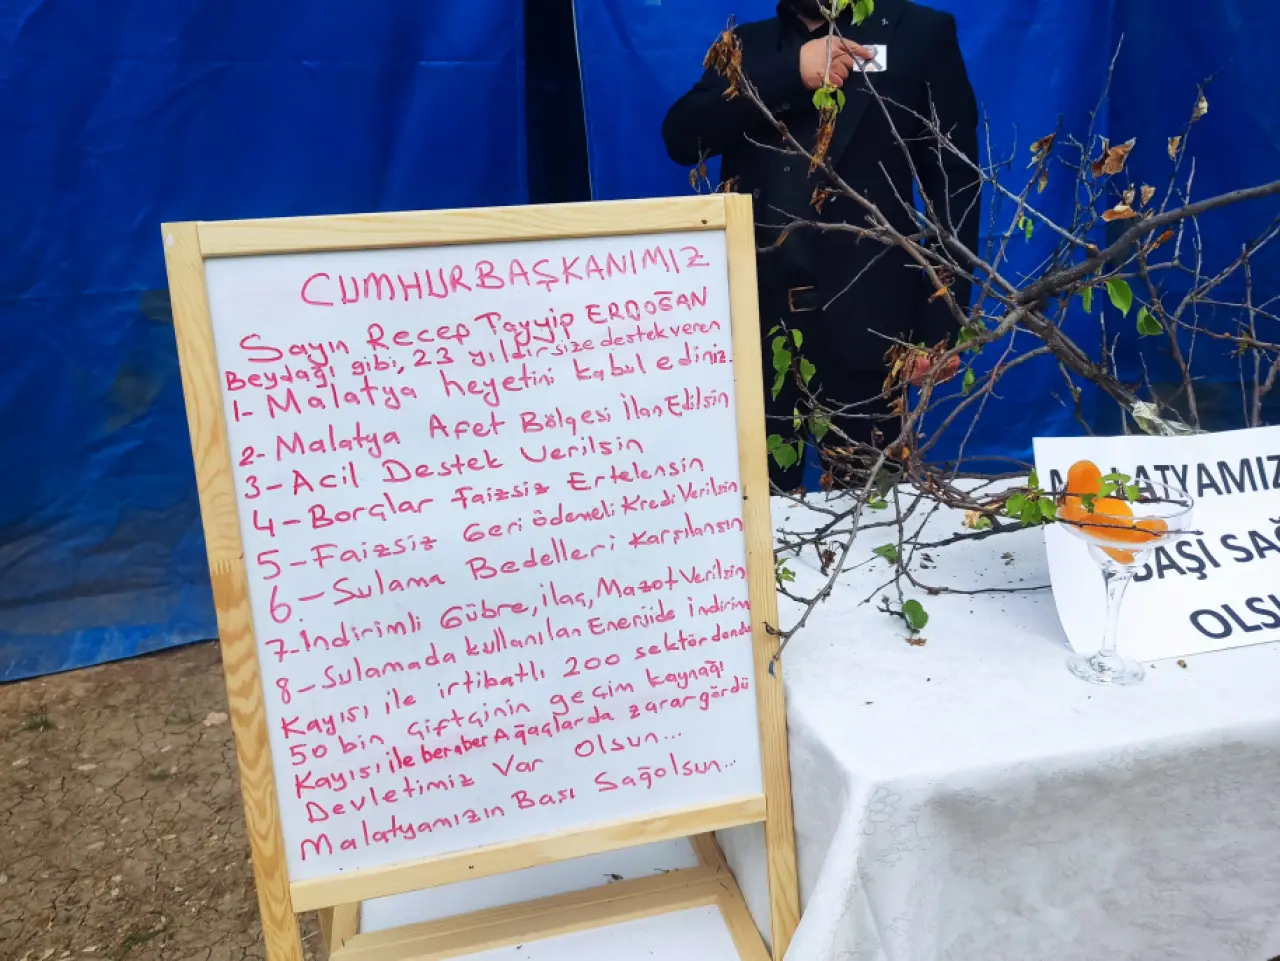 CUMHURBAŞKANIMIZ
Sayın Recep Tayyip ERDOĞAN
Beydağı gibi, 23 yıldır size destek veren
1- Malatya heyetini kabul ediniz.
2- Malatya Afet Bölgesi İlan Edilsin
3- Acil Destek Verilsin
4- Borçlar Faizsiz Ertelensin
5- Faizsiz Geri ödemeli Kredi Verilsin
6- Sulama Bedelleri Karşılansın
7- İndirimli Gübre, ilaç, Mazot Verilsin
8- Sulamada kullanılan Enerjide İndirim
Kayısı ile irtibatlı 200 sektör dondu
50 bin Çiftçinin geçim kaynağı
Kayısı ile beraber Ağaçlarda zarar gördü
Devletimiz Var Olsun...
Malatyamızın Başı Sağolsun...